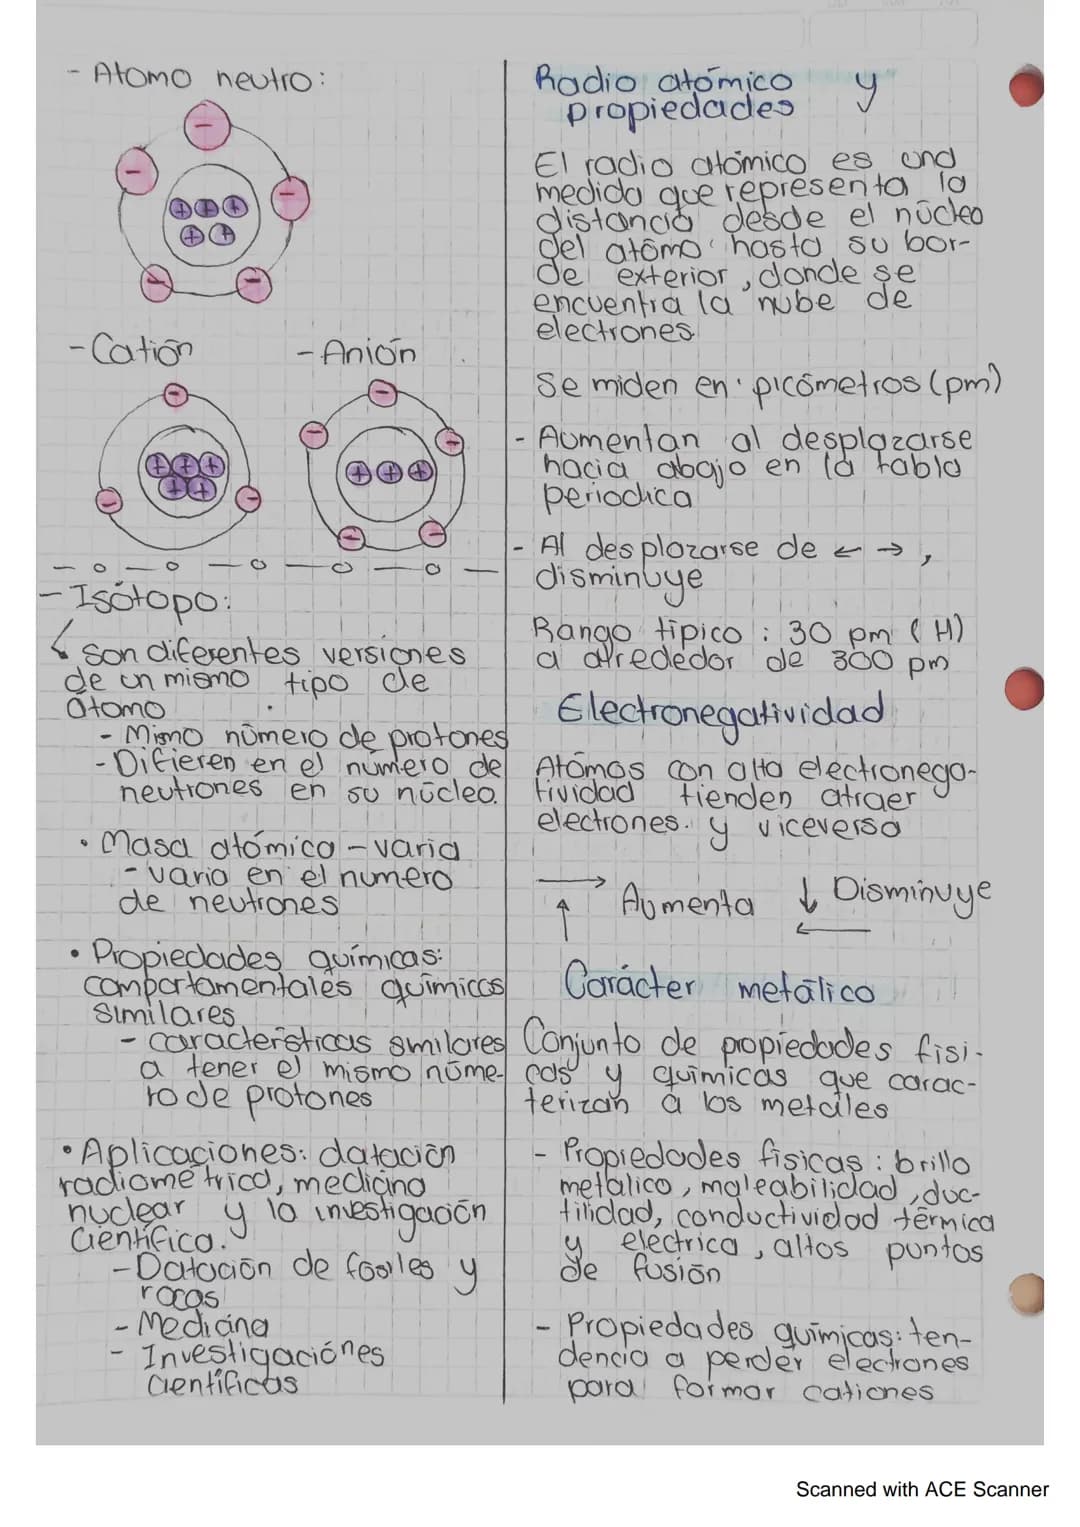 - Atomo neutro:
- Catión
- Anión
- Isótopo:
son diferentes versiones
de un mismo tipo de
átomo
- Mismo número de protones
- Difieren en el número de
neutrones en su núcleo.
• Masa atómica - varia
- varia en el numero
de neutrones
• Propiedades químicas:
comportamentales químicos
similares
- características similares
a tener el mismo núme-
ro de protones
• Aplicaciones: datación
radiométrica, medicina
nuclear y la investigación
Científica.
- Datación de fósiles y
rocas
- Medicina
- Investigaciónes
Científicas
Radio atómico y
propiedades
El radio atómico es una
medida que representa la
distancia desde el núcleo
del atómo hasta su bor-
de exterior, donde se
encuentra la nube de
electrones.
Se miden en picómetros (pm)
- Aumentan al desplazarse
hacia abajo en la tabla
periodica
- Al desplazarse de ← → ,
disminuye
Rango típico : 30 pm (H)
a alrededor de 300 pm
Electronegatividad
Atómos con alta electronega-
tividad tienden atraer
electrones. y viceversa
→ ↑ Aumenta ↓ ← Disminuye
Carácter metálico
Conjunto de propiedades físi-
cas y químicas que carac-
terizan a los metáles
- Propiedades físicas : brillo
metálico, maleabilidad, duc-
tilidad, conductividad térmica
y electrica, altos puntos
de fusión
- Propiedades químicas: ten-
dencia a perder electrones
para formar cationes
Scanned with ACE Scanner